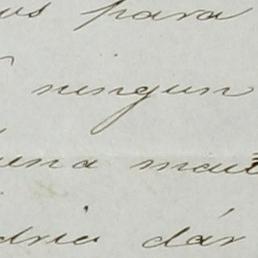 para
ningun
una mas
dria dár